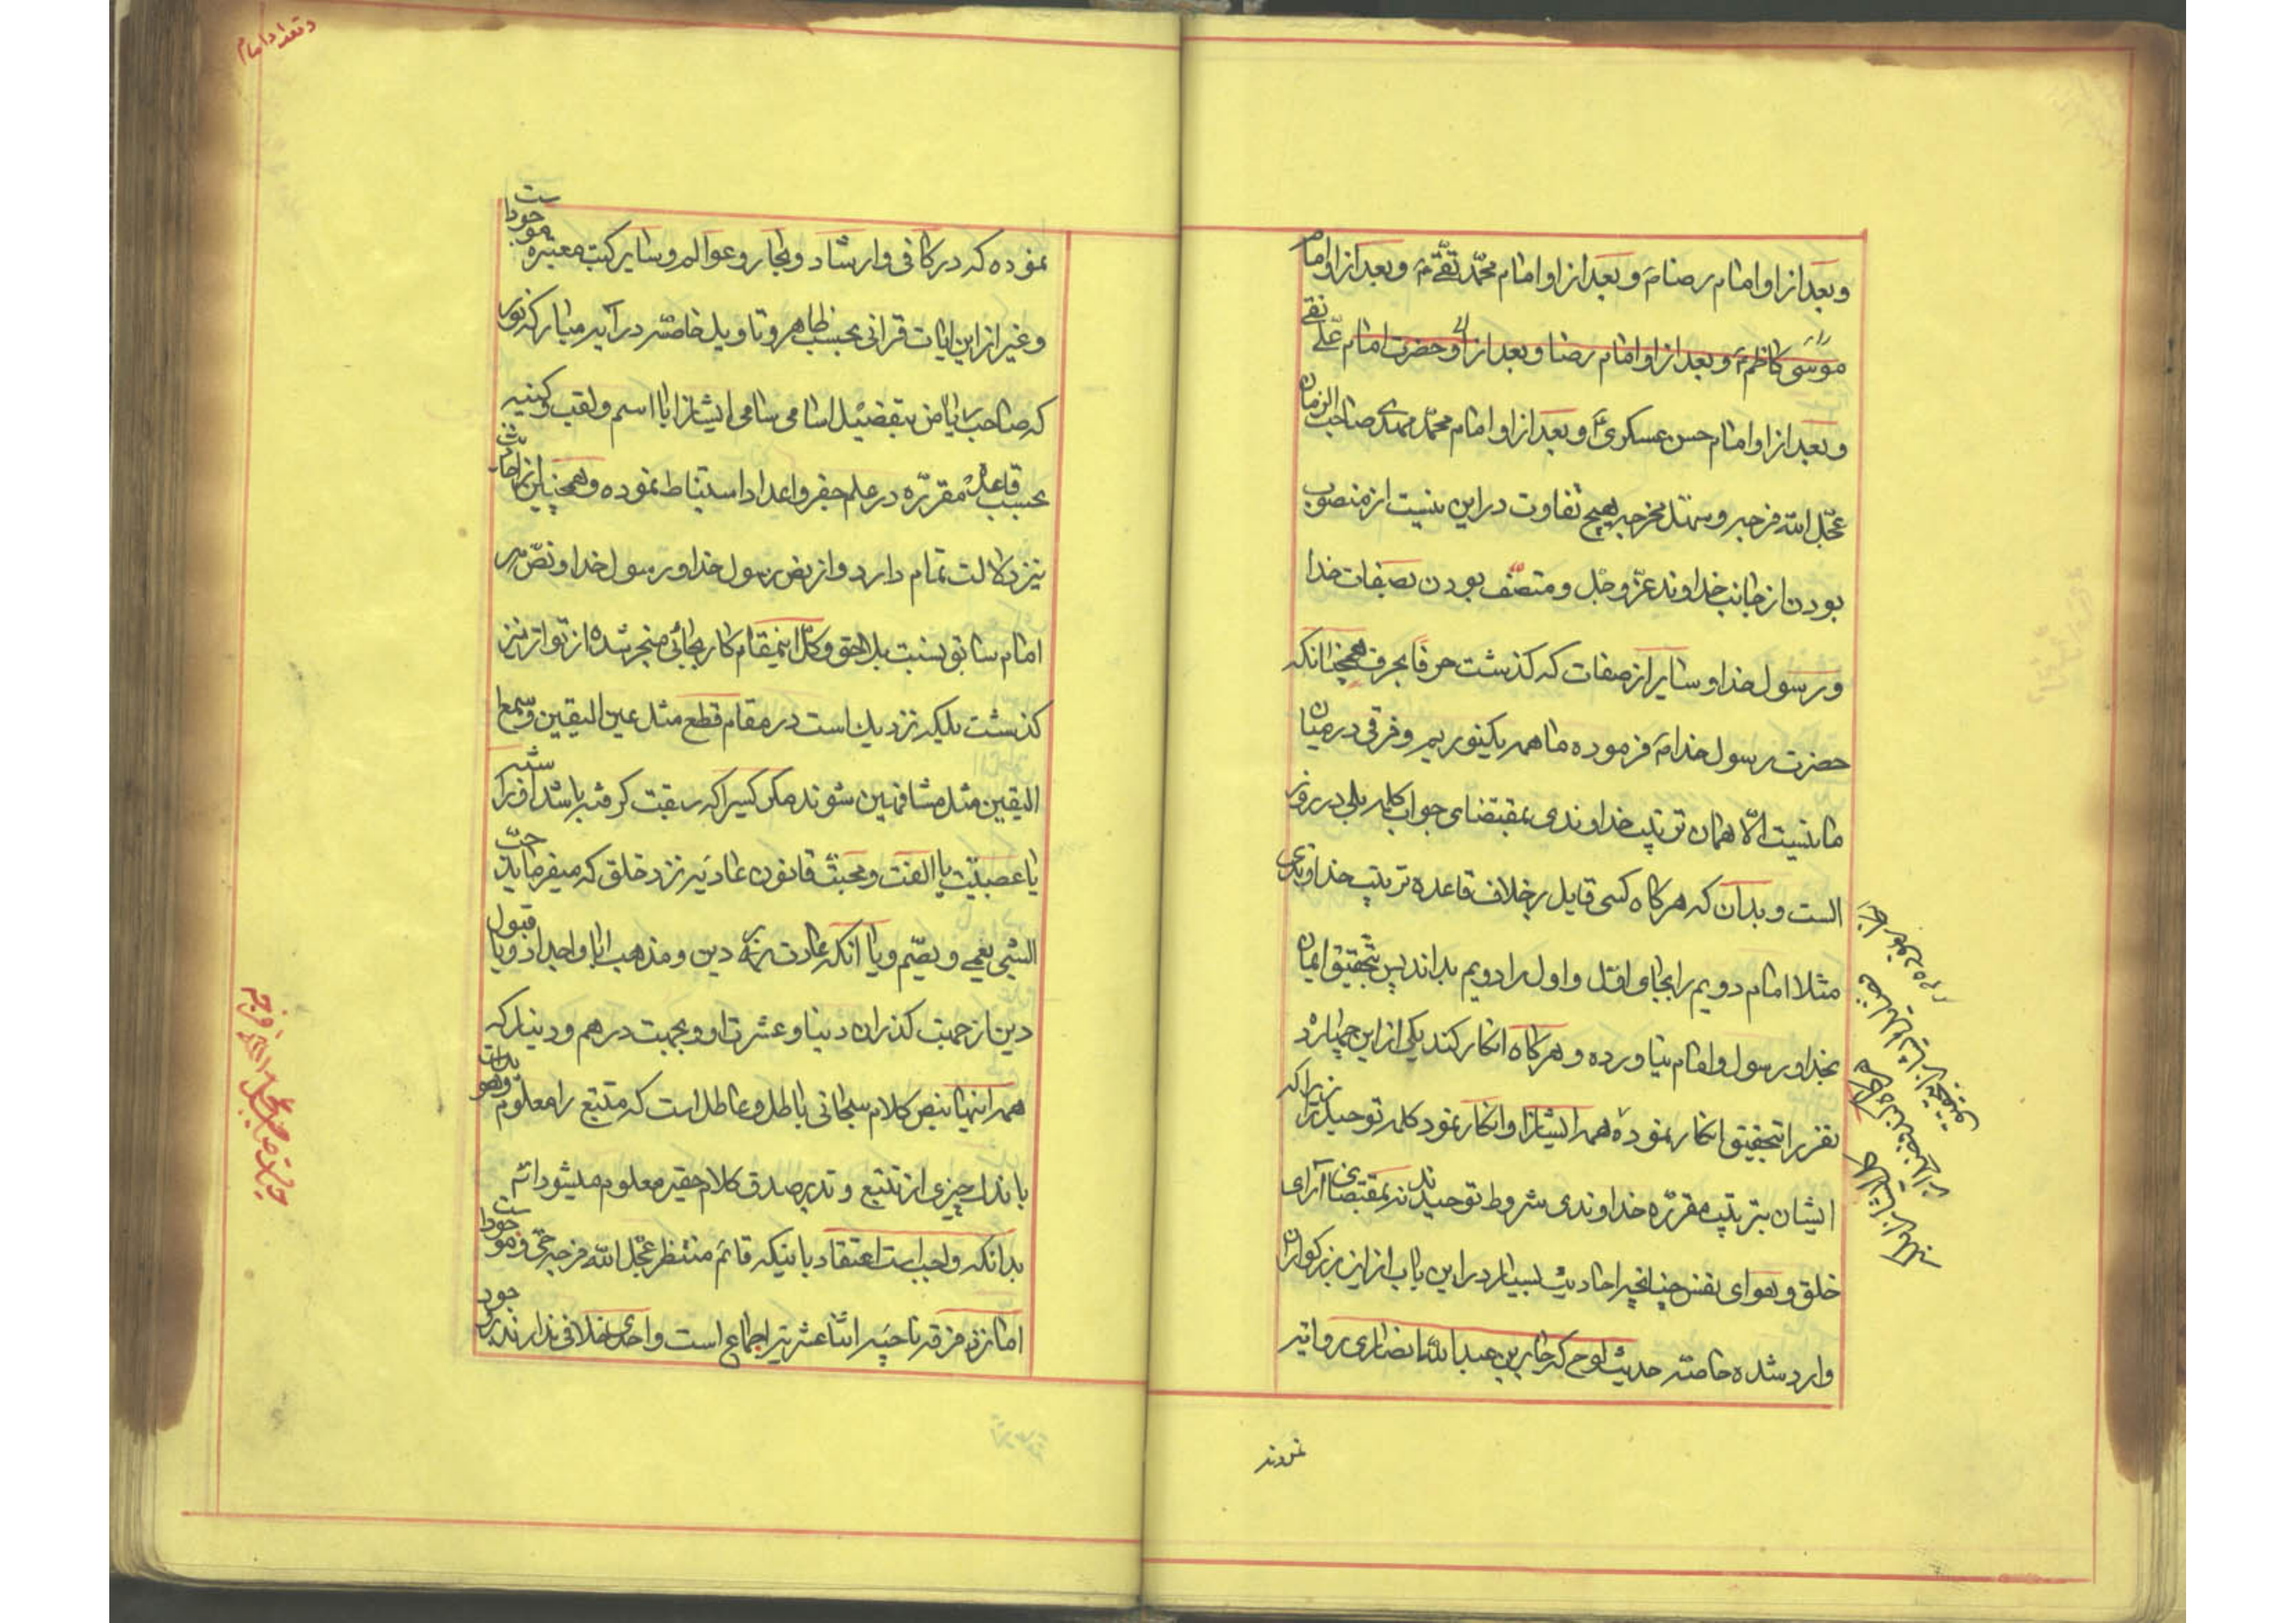 وبعد از او امام رضا م و بعد از او امام محمّد تقی م و بعد از او امام
موسی کاظم م و بعد از او امام رضا و بعد از او حضرت امام علی نقی
و بعد از او امام حسن عسکری و بعد از او امام محمّد مهدی صاحب الزمان
عجّل الله فرجه و سهّل مخرجه هیچ تفاوت در این نیست از منصوب
بودن از جانب خداوند عزّ و جل و متصّف بودن بصفات خدا
و رسول خدا و سایر از صفات که گذشت حرفا بحرف همچنانکه
حضرت رسول خدا م فرموده ما همه یکنوریم و فرقی در میان
ما نیست الّا همان ترتیب خداوندی بمقتضای جواب کلمه بلی در روز
الست و بدان که هر کاه کسی قایل بر خلاف قاعده ترتیب خداوندی
مثلا امام دویم را بجای اوّل و اول را دویم بداند پس بتحقیق ایمان
بخدا و رسول و امام نیاورده و هر کاه انکار کند یکی از این چهارده
نفر را بتحقیق انکار نموده همه ایشانرا و انکار نمود کلمه توحید را زیرا که
ایشان بترتیب مقرّره خداوندی شروط توحیدند نه بمقتضای آرای
خلق و هوای نفس چنانچه احادیث بسیار در این باب از این بزرکواران
وارد شده خاصّه حدیث لوح که جابر بن عبد الله انصاری روایة
نموده که در کافی و ارشاد و بحار و عوالم و سایر کتب معتبره موجود است
و غیر از این ایات قرانی بحسب ظاهر و تاویل خاصّه در آیه مبارکه نور
که صاحب ریاض بتفضیل اسامی سامی ایشانرا با اسم و لقب و کنیه
بحسب قاعدهٔ مقررّه در علم جفر و اعداد استنباط نموده و همچنین احادیث
نیز دلالت تمام دارد و از نص رسول خدا و رسول خدا و نصّ هر
امام سابق نسبت بلاحق و کل اینمقام کار بجائی منجر شده از تواتر نیز
کذشت بلکه نزدیک است در مقام قطع مثل عین الیقین و سمع
الیقین مثل مشافهین شوند مکر کسیرا که سبقت کرفته باشد او را شبهه
یا عصبیّت یا الفت و محبّت قانون عادیّه نزد خلق که میفرماید حبّ
الشی یعمی و یصّم و یا انکه عادت دین و مذهب ابا و اجداد و یا قبول
دین از جهت کذران دنیا و عشرت او و بجهت درهم و دینار که
همه اینها بنص کلام سبحانی باطل و عاطل است که متتبع را معلوم
باندک چیزی از تتبع و تدبر صدق کلام حقیر معلوم میشود انشم
بدانکه واجب است اعتقاد باینکه قائم منتظر عجّل الله فرجه حی و موجود است
اما نزد فرقه ناجیه اثنا عشریه اجماع است و احدی خلافی ندارند
نموده